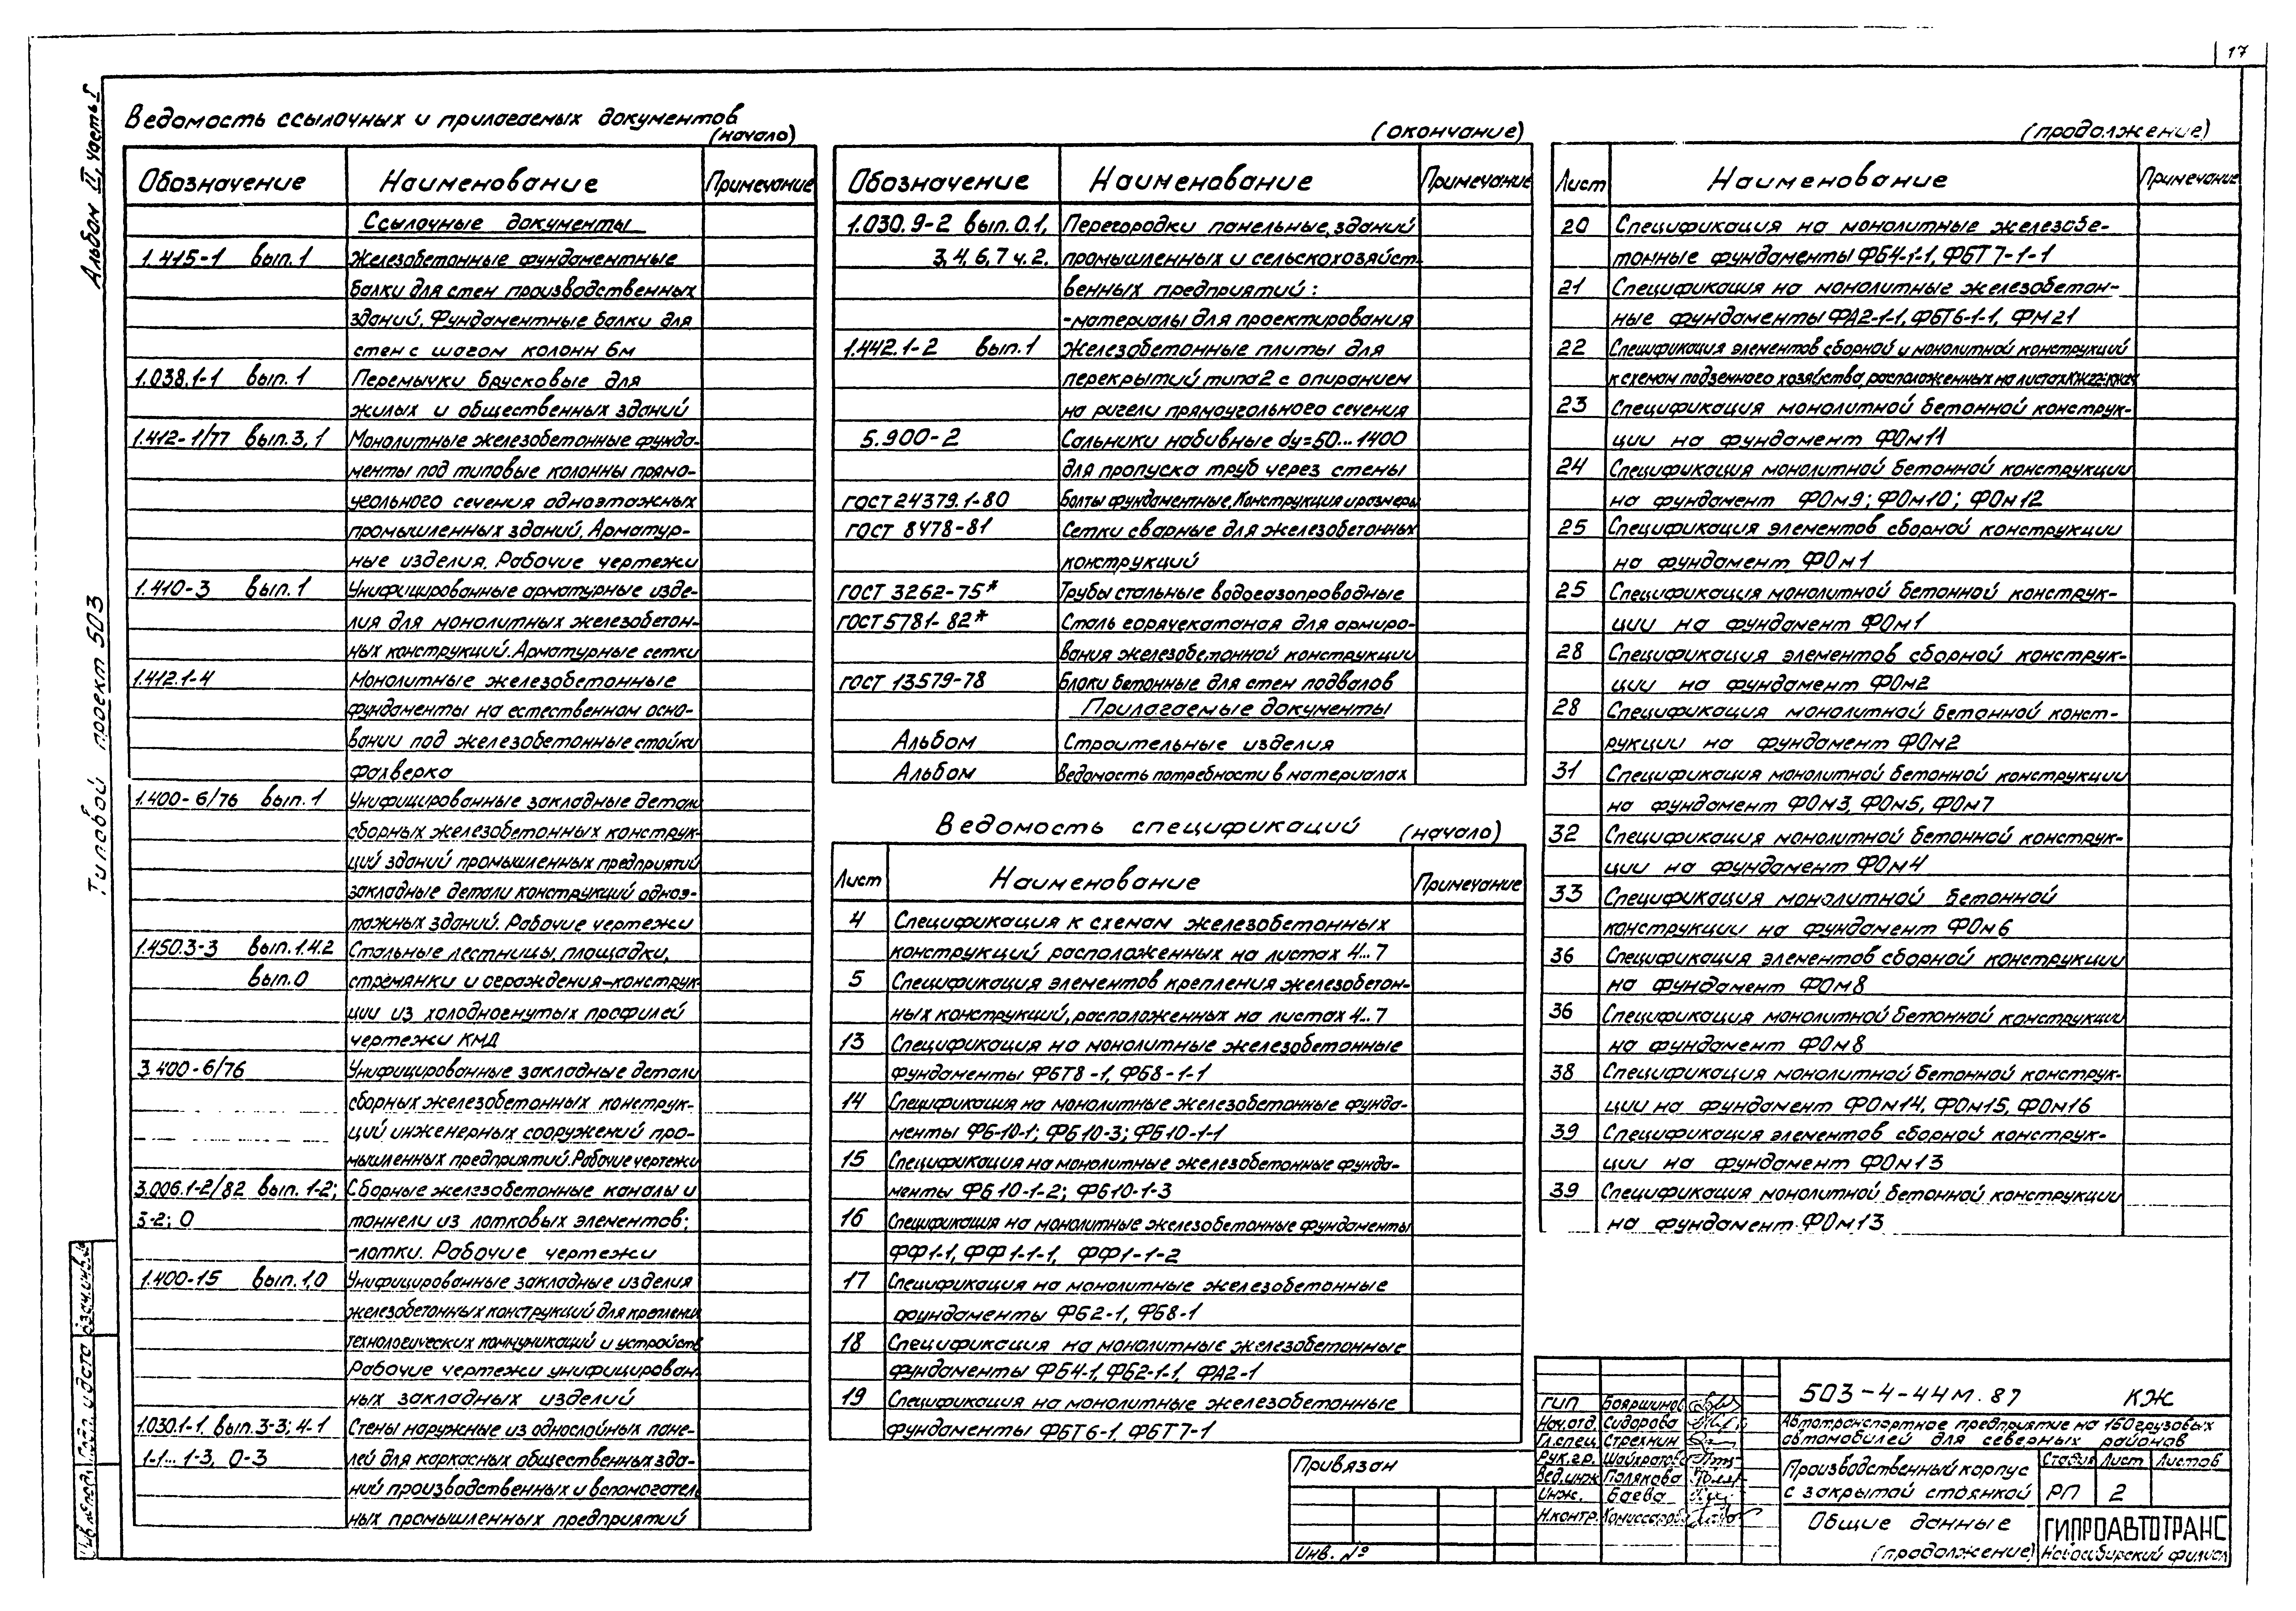 17
Альбом II, часть I
Типовой проект 503
Ведомость ссылочных и прилагаемых документов
(начало)
Обозначение Наименование Примечание
Ссылочные документы
1.415-1 вып.1 Железобетонные фундаментные
балки для стен производственных
зданий. Фундаментные балки для
стен с шагом колонн 6м
1.038.1-1 вып.1 Перемычки брусковые для
жилых и общественных зданий
1.412-1/77 вып.3,1 Монолитные железобетонные фунда-
менты под типовые колонны прямо-
угольного сечения одноэтажных
промышленных зданий. Арматур-
ные изделия. Рабочие чертежи
1.410-3 вып.1 Унифицированные арматурные изде-
лия для монолитных железобетон-
ных конструкций. Арматурные сетки
1.412.1-4 Монолитные железобетонные
фундаменты на естественном осно-
вании под железобетонные стойки
фахверка
1.400-6/76 вып.1 Унифицированные закладные детали
сборных железобетонных конструк-
ций зданий промышленных предприятий
закладные детали конструкций одноэ-
тажных зданий. Рабочие чертежи
1.450.3-3 вып.1.4.2 Стальные лестницы, площадки,
вып.0 стремянки и ограждения-конструк-
ции из холодногнутых профилей
чертежи КМД
3.400-6/76 Унифицированные закладные детали
сборных железобетонных конструк-
ций инженерных сооружений про-
мышленных предприятий. Рабочие чертежи
3.006.1-2/82 вып. 1-2; Сборные железобетонные каналы и
3-2; 0 тоннели из лотковых элементов:
-лотки. Рабочие чертежи
1.400-15 вып.1,0 Унифицированные закладные изделия
железобетонных конструкций для крепления
технологических коммуникаций и устройств
Рабочие чертежи унифицирован-
ных закладных изделий
1.030.1-1 вып.3-3; 4-1 Стены наружные из однослойных пане-
1-1... 1-3, 0-3 лей для каркасных общественных зда-
ний производственных и вспомогатель
ных промышленных предприятий
(окончание)
Обозначение Наименование Примечание
1.030.9-2 вып.0.1, Перегородки панельные, зданий
3,4,6,7 ч.2, промышленных и сельскохозяйст-
венных предприятий:
-материалы для проектирования
1.442.1-2 вып.1 Железобетонные плиты для
перекрытий типа 2 с опиранием
на ригели прямоугольного сечения
5.900-2 Сальники набивные dу=50...1400
для пропуска труб через стены
ГОСТ 24379.1-80 Болты фундаментные. Конструкция и размеры
ГОСТ 8478-81 Сетки сварные для железобетонных
конструкций
ГОСТ 3262-75* Трубы стальные водогазопроводные
ГОСТ 5781-82* Сталь горячекатаная для армиро-
вания железобетонной конструкции
ГОСТ 13579-78 Блоки бетонные для стен подвалов
Прилагаемые документы
Альбом Строительные изделия
Альбом Ведомость потребности в материалах
Ведомость спецификаций (начало)
Лист Наименование Примечание
4 Спецификация к схемам железобетонных
конструкций расположенных на листах 4...7
5 Спецификация элементов крепления железобетон-
ных конструкций, расположенных на листах 4...7
13 Спецификация на монолитные железобетонные
фундаменты ФБТ8-1, ФБ8-1-1
14 Спецификация на монолитные железобетонные фунда-
менты ФБ-10-1; ФБ10-3; ФБ10-1-1
15 Спецификация на монолитные железобетонные фунда-
менты ФБ10-1-2; ФБ10-1-3
16 Спецификация на монолитные железобетонные фундаменты
ФФ1-1, ФФ1-1-1, ФФ1-1-2
17 Спецификация на монолитные железобетонные
фундаменты ФБ2-1, ФБ8-1
18 Спецификация на монолитные железобетонные
фундаменты ФБ4-1, ФБ2-1-1, ФА2-1
19 Спецификация на монолитные железобетонные
фундаменты ФБТ6-1, ФБТ7-1
(продолжение)
Лист Наименование Примечание
20 Спецификация на монолитные железобе-
тонные фундаменты ФБ4-1-1, ФБТ7-1-1
21 Спецификация на монолитные железобетон-
ные фундаменты ФА2-1-1, ФБТ6-1-1, ФМ21
22 Спецификация элементов сборной и монолитной конструкций
к схемам подземного хозяйства, расположенных на листах
23 Спецификация монолитной бетонной конструк-
ции на фундамент ФОм11
24 Спецификация монолитной бетонной конструкции
на фундамент ФОм9; ФОм10; ФОм12
25 Спецификация элементов сборной конструкции
на фундамент ФОм1
25 Спецификация монолитной бетонной конструк-
ции на фундамент ФОм1
28 Спецификация элементов сборной конструк-
ции на фундамент ФОм2
28 Спецификация монолитной бетонной конст-
рукции на фундамент ФОм2
31 Спецификация монолитной бетонной конструкции
на фундамент ФОм3, ФОм5, ФОм7
32 Спецификация монолитной бетонной конструк-
ции на фундамент ФОм4
33 Спецификация монолитной бетонной
конструкции на фундамент ФОм6
36 Спецификация элементов сборной конструкции
на фундамент ФОм8
36 Спецификация монолитной бетонной конструкции
на фундамент ФОм8
38 Спецификация монолитной бетонной конструк-
ции на фундамент ФОм14, ФОм15, ФОм16
39 Спецификация элементов сборной конструк-
ции на фундамент ФОм13
39 Спецификация монолитной бетонной конструкции
на фундамент ФОм13
Привязан
Инв. №
ГИП Бояршинов
Нач.отд. Сидорова
Гл.спец. Стрехнин
Рук.гр.
Вед.инж. Полякова
Инж. Баева
Н.контр.
503-4-44м.87 КЖ
Автотранспортное предприятие на 150 грузовых
автомобилей для северных районов
Производственный корпус
с закрытой стоянкой
Стадия Лист Листов
РП 2
Общие данные
(продолжение)
ГИПРОАВТОТРАНС
Новосибирский филиал
Инв.№ подл. Подп. и дата Взам.инв.№